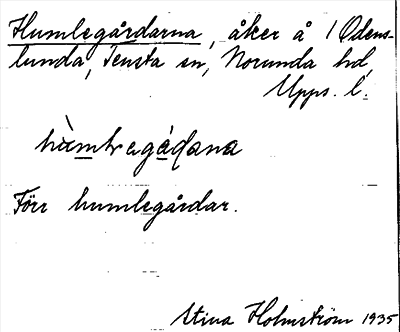 Humlegårdarna, åker å 1 Ödens-
lunda, Tensta sn, Norunda hd,
Upps. l.
Förr humlegårdar.
Stina Holmström 1935